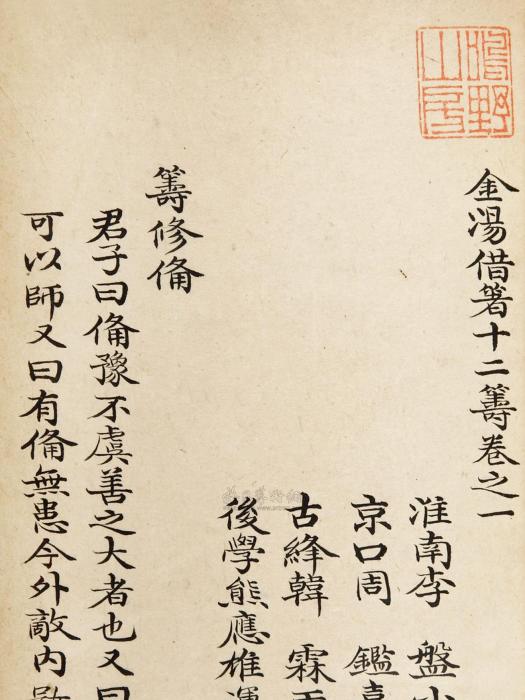 金湯借箸十二籌卷之一
淮南李 盤小
京口周 鑑
古絳韓 霖
後學熊應雄運
籌修備
君子曰備豫不虞善之大者也又曰
可以師又曰有備無患今外敵內